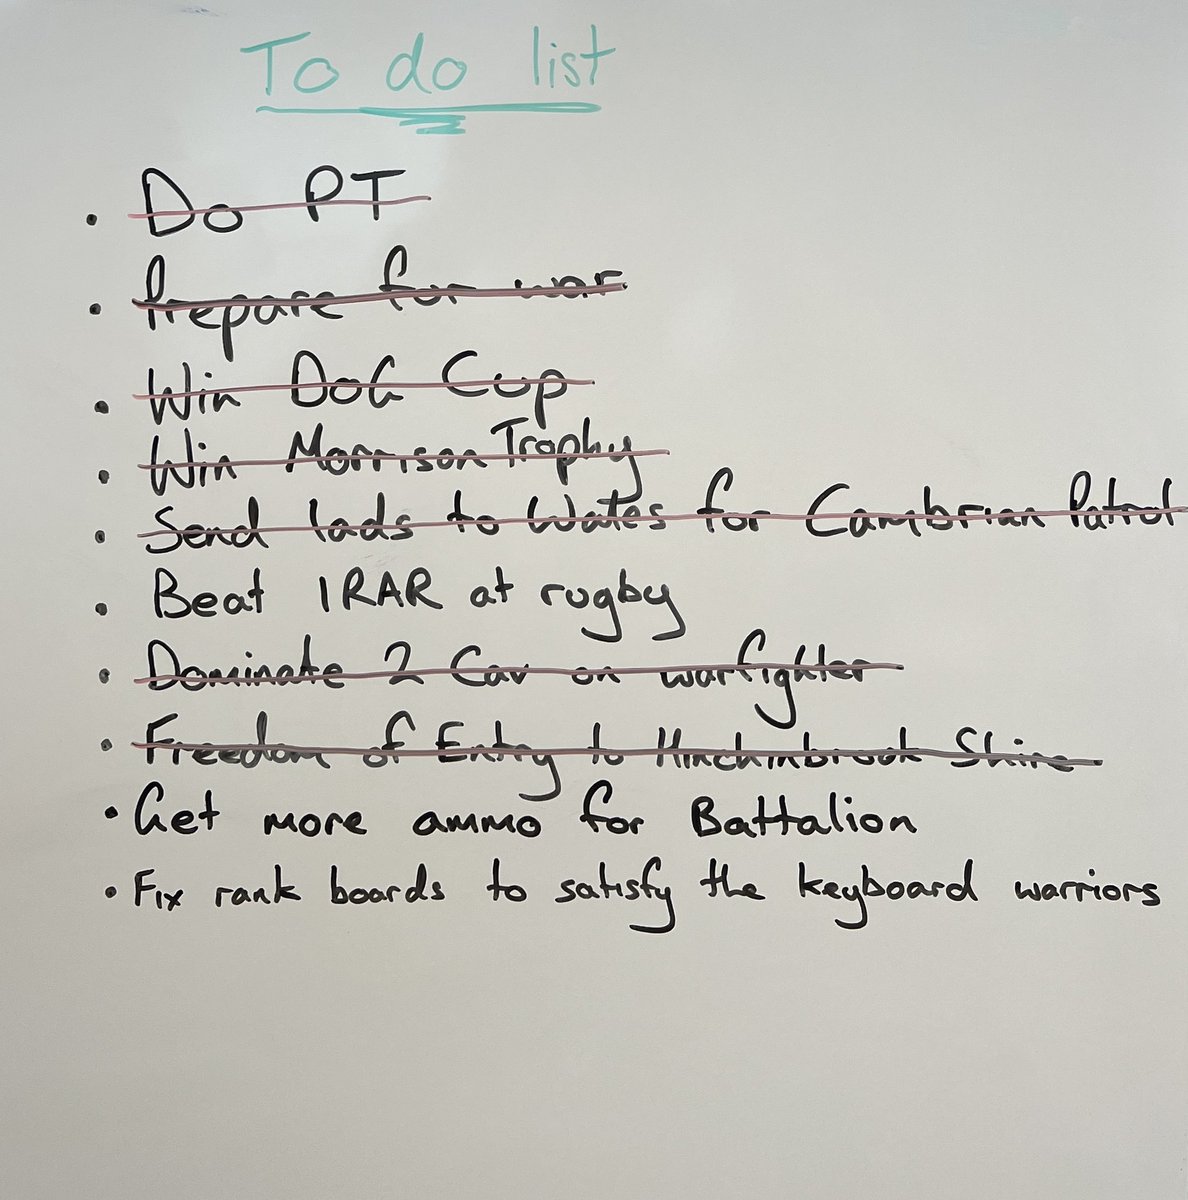 To do list
• Do PT
• Prepare for war
• Win DoG Cup
• Win Morrison Trophy
• Send lads to Wales for Cambrian Patrol
• Beat 1RAR at rugby
• Dominate 2 Cav on warfighter
• Freedom of Entry to Hinchinbrook Shire
• Get more ammo for Battalion
• Fix rank boards to satisfy the keyboard warriors